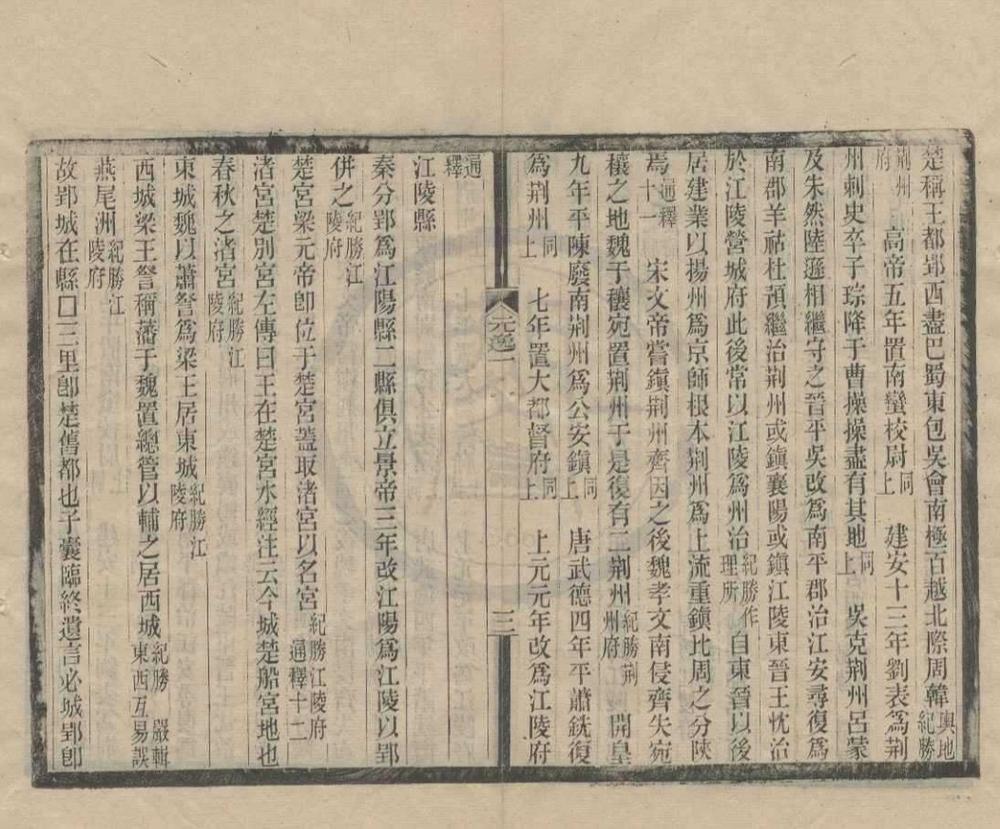 楚稱王都郢西盡巴蜀東包吳會南極百越北際周韓輿地紀勝
荆州府 高帝五年置南蠻校尉同上 建安十三年劉表爲荆
州刺史卒子琮降于曹操操盡有其地同上 吳克荆州呂蒙
及朱然陸遜相繼守之晉平吳改爲南平郡治江安尋復爲
南郡羊祜杜預繼治荆州或鎭襄陽或鎭江陵東晉王忱治
於江陵營城府此後常以江陵爲州治紀勝作理所 自東晉以後
居建業以揚州爲京師根本荆州爲上流重鎭比周之分陝
焉通釋十一 宋文帝嘗鎭荆州齊因之後魏孝文南侵齊失宛
穰之地魏于穰宛置荆州于是復有二荆州紀勝荆州府 開皇
九年平陳廢南荆州爲公安鎭同上 唐武德四年平蕭銑復
爲荆州同上 七年置大都督府同上 上元元年改爲江陵府
元逸一 三
通釋
江陵縣
秦分郢爲江陽縣二縣俱立景帝三年改江陽爲江陵以郢
併之紀勝江陵府
楚宮梁元帝卽位于楚宮蓋取渚宮以名宮紀勝江陵府通釋十二
渚宮楚別宮左傳曰王在楚宮水經注云今城楚船宮地也
春秋之渚宮紀勝江陵府
東城魏以蕭詧爲梁王居東城紀勝江陵府
西城梁王詧稱藩于魏置總管以輔之居西城紀勝 嚴輯東西互易誤
燕尾洲紀勝江陵府
故郢城在縣□三里卽楚舊都也子囊臨終遺言必城郢卽